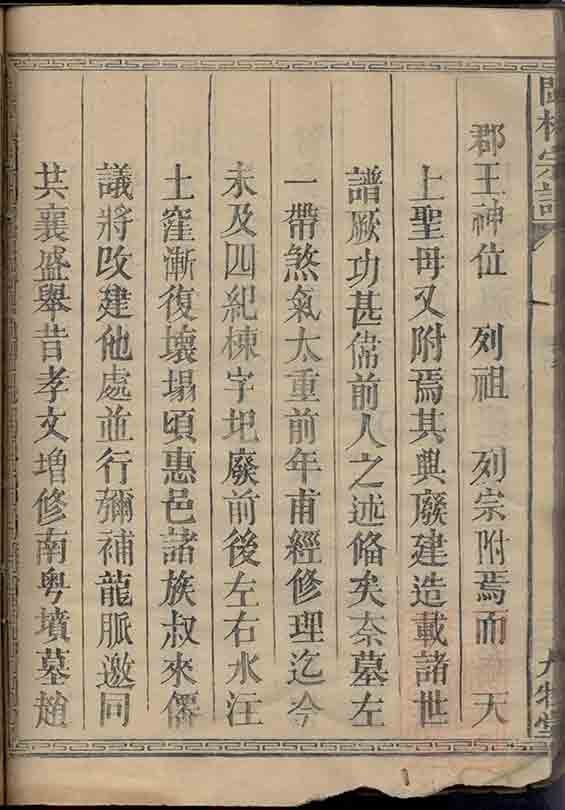 閩林宗譜
九牧堂
郡王神位　列祖　列宗附焉而　天
上聖母又附焉其興廢建造載諸世
譜厥功甚偉前人之述備矣奈墓左
一帶煞氣太重前年甫經修理迄今
未及四紀棟宇圯廢前後左右水汪
土窪漸復壞塌頃惠邑諸族叔來僊
議將改建他處並行彌補龍脈邀同
共襄盛舉昔孝文增修南粵墳墓趙